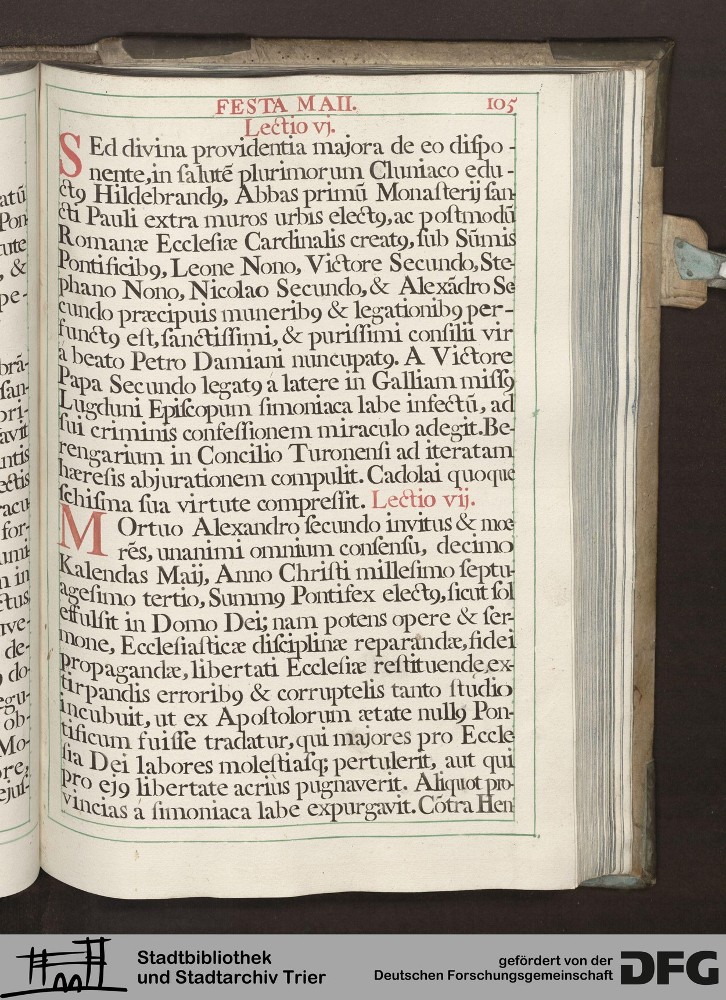 FESTA MAII. 105
Lectio vj.
SEd divina providentia majora de eo diſpo-
nente, in ſalutē plurimorum Cluniaco edu-
ct9 Hildebrand9, Abbas primū Monaſterij ſan
cti Pauli extra muros urbis elect9, ac poſtmodū
Romanæ Eccleſiæ Cardinalis creat9, ſub Sūmis
Pontificib9, Leone Nono, Victore Secundo, Ste-
phano Nono, Nicolao Secundo, & Alexādro Se
cundo præcipuis munerib9 & legationib9 per-
funct9 eſt, ſanctiſſimi, & puriſſimi conſilii vir
a beato Petro Damiani nuncupat9. A Victore
Papa Secundo legat9 a latere in Galliam miſſ9
Lugduni Epiſcopum ſimoniaca labe infectū, ad
ſui criminis confeſſionem miraculo adegit. Be-
rengarium in Concilio Turonenſi ad iteratam
hæreſis abjurationem compulit. Cadolai quoque
ſchiſma ſua virtute compreſſit. Lectio vij.
MOrtuo Alexandro ſecundo invitus & mœ
rēs, unanimi omnium conſenſu, decimo
Kalendas Maij, Anno Chriſti milleſimo ſeptu-
ageſimo tertio, Summ9 Pontifex elect9, ſicut ſol
effulſit in Domo Dei; nam potens opere & ſer-
mone, Eccleſiaſticæ diſciplinæ reparandæ, fidei
propagandæ, libertati Eccleſiæ reſtituende, ex-
tirpandis errorib9 & corruptelis tanto ſtudio
incubuit, ut ex Apoſtolorum ætate null9 Pon-
tificum fuiſſe tradatur, qui majores pro Eccle
ſia Dei labores moleſtiaſq; pertulerit, aut qui
pro ej9 libertate acrius pugnaverit. Aliquot pro-
vincias á ſimoniaca labe expurgavit. Cōtra Hen
Stadtbibliothek
und Stadtarchiv Trier
gefördert von der
Deutschen Forschungsgemeinschaft
DFG